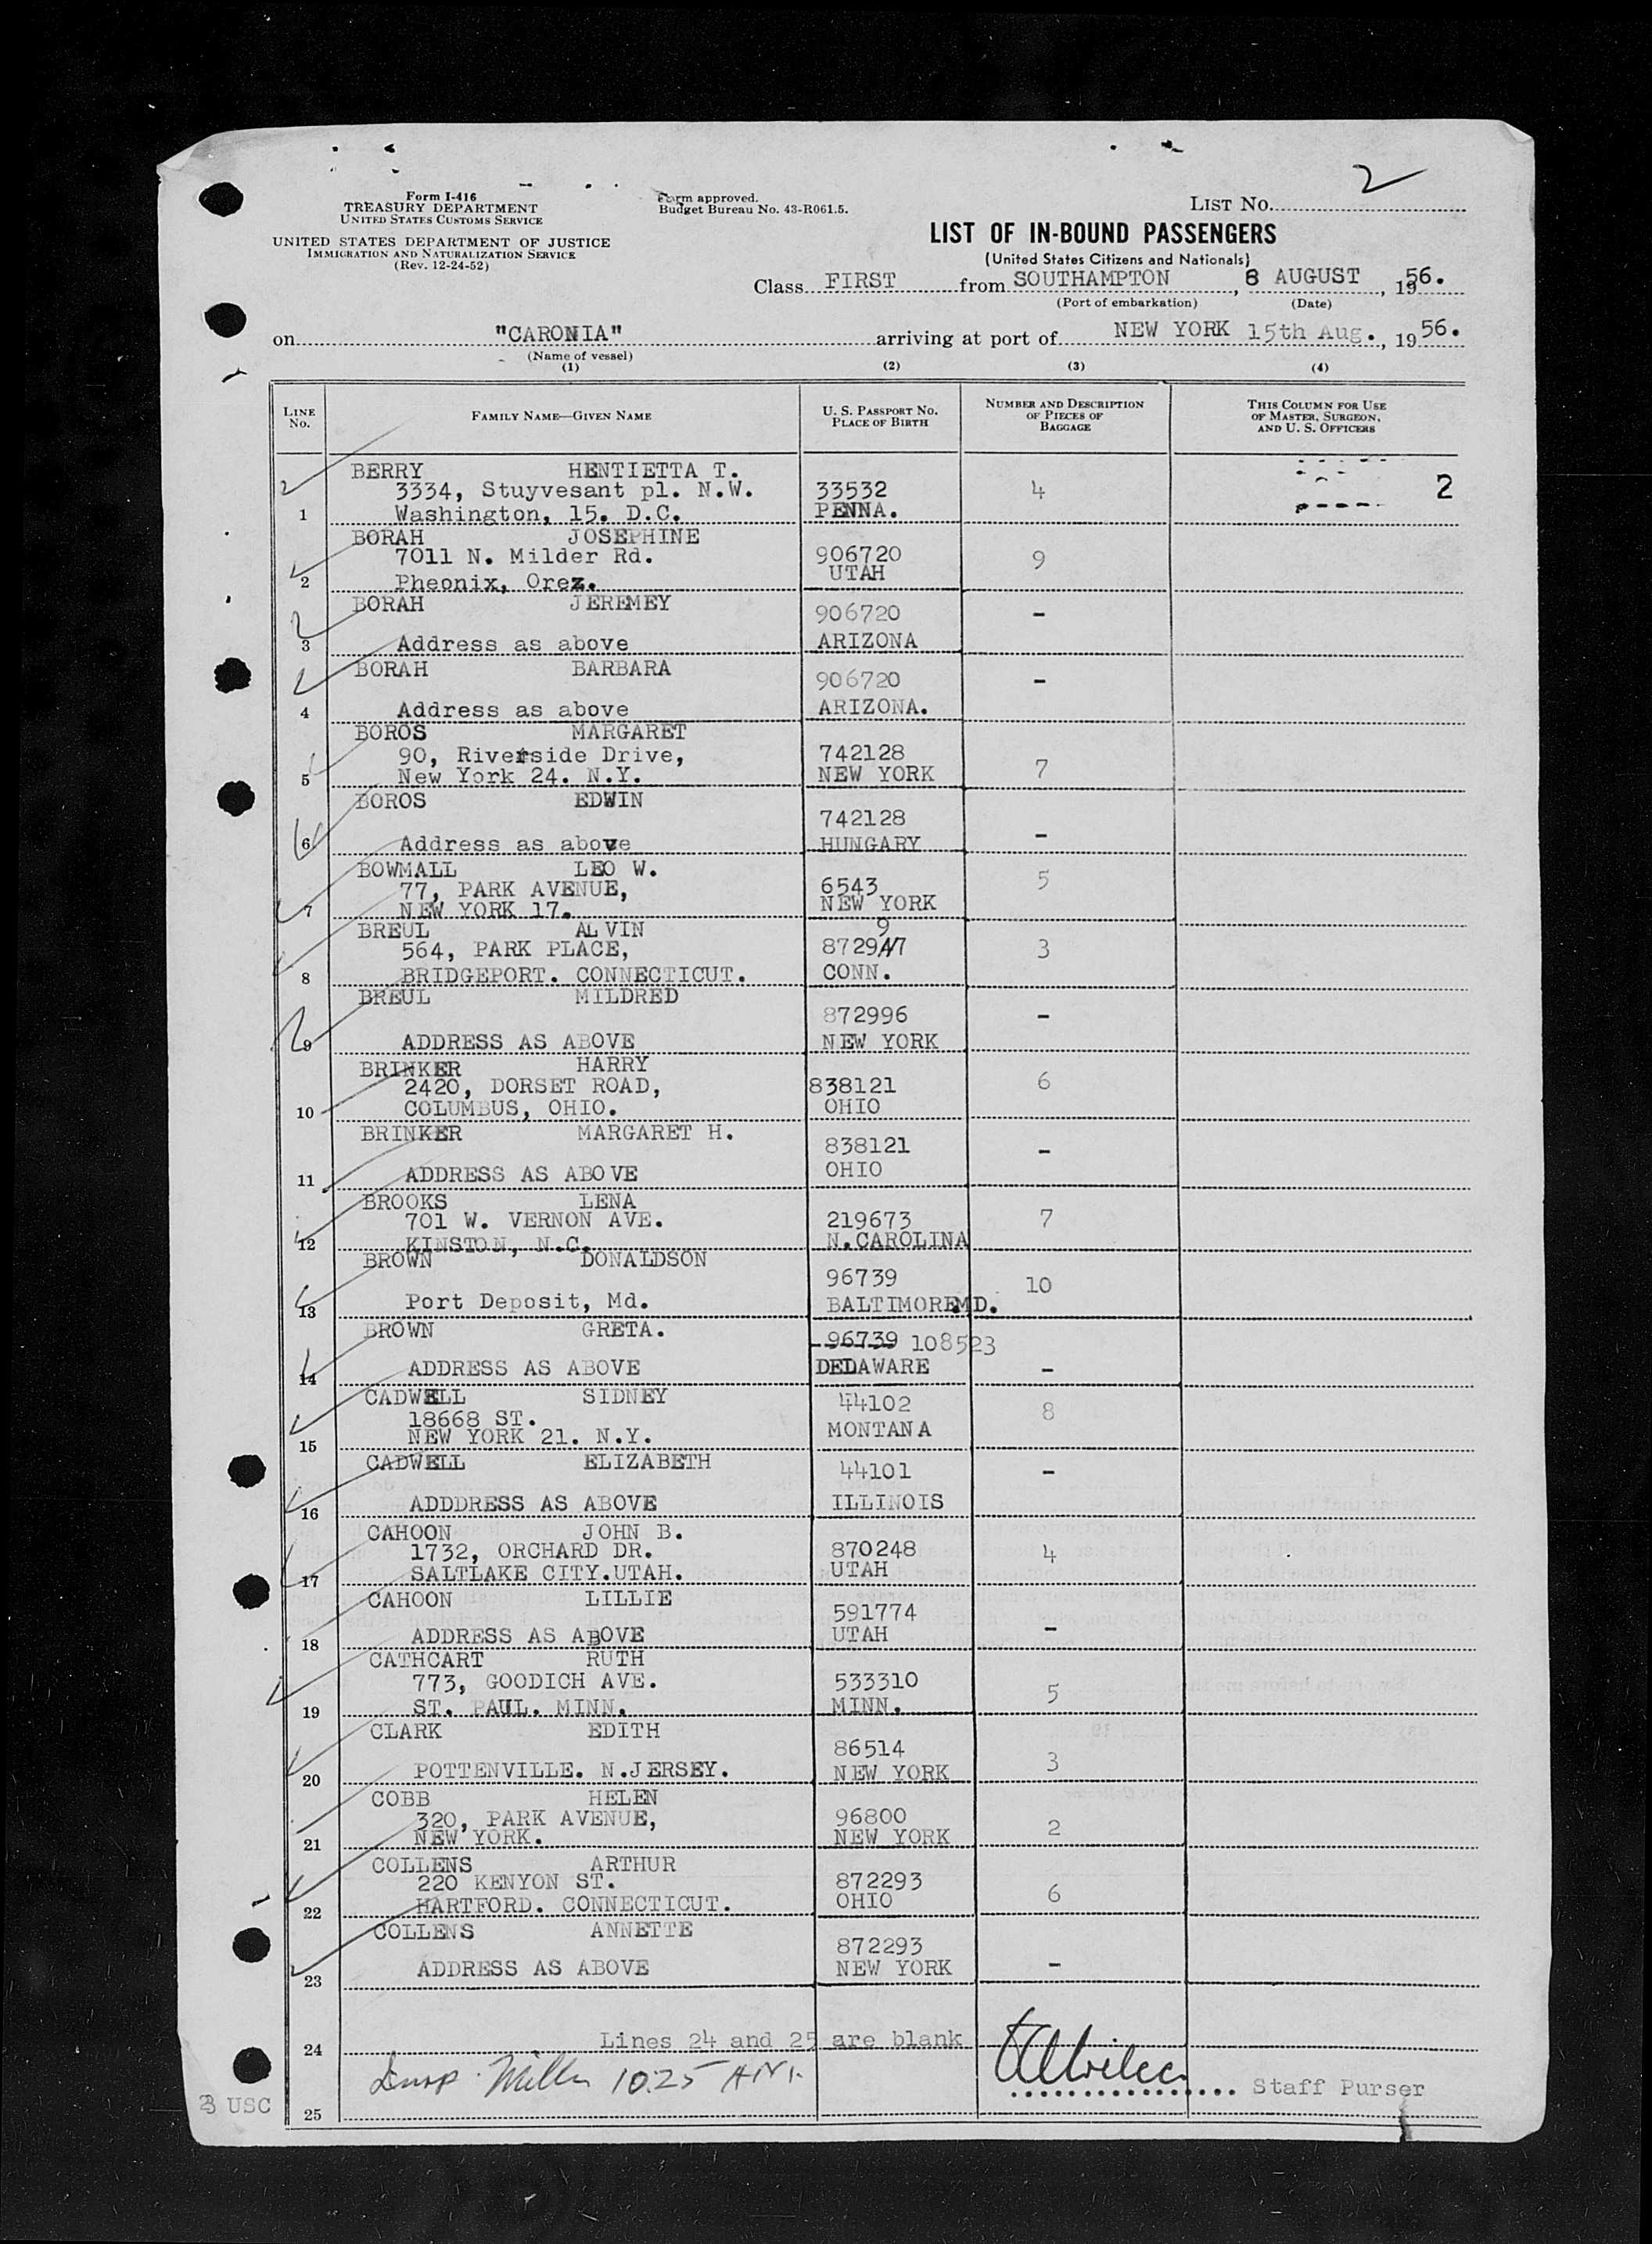 2
Form I-416
TREASURY DEPARTMENT
UNITED STATES CUSTOMS SERVICE
UNITED STATES DEPARTMENT OF JUSTICE
IMMIGRATION AND NATURALIZATION SERVICE
(Rev. 12-24-52)
Form approved.
Budget Bureau No. 43-R061.5.
LIST NO.
LIST OF IN-BOUND PASSENGERS
(United States Citizens and Nationals)
Class FIRST from SOUTHAMPTON, 8 AUGUST, 1956.
(Port of embarkation) (Date)
on "CARONIA" arriving at port of NEW YORK 15th Aug., 1956.
(Name of vessel)
(1) (2) (3) (4)
LINE NO.
FAMILY NAME—GIVEN NAME
U. S. PASSPORT NO.
PLACE OF BIRTH
NUMBER AND DESCRIPTION
OF PIECES OF
BAGGAGE
THIS COLUMN FOR USE
OF MASTER, SURGEON,
AND U. S. OFFICERS
BERRY HENTIETTA T.
3334, Stuyvesant pl. N.W. 33532 4 2
1 Washington, 15. D.C. PENNA.
BORAH JOSEPHINE
7011 N. Milder Rd. 906720 9
2 Pheonix, Orez. UTAH
BORAH JEREMEY 906720 -
3 Address as above ARIZONA
BORAH BARBARA 906720 -
4 Address as above ARIZONA.
BOROS MARGARET
90, Riverside Drive, 742128
5 New York 24. N.Y. NEW YORK 7
BOROS EDWIN 742128
6 Address as above HUNGARY -
BOWMALL LEO W. 5
77, PARK AVENUE, 6543
7 NEW YORK 17. NEW YORK
BREUL ALVIN 9
564, PARK PLACE, 8729 7 3
8 BRIDGEPORT. CONNECTICUT. CONN.
BREUL MILDRED 872996 -
9 ADDRESS AS ABOVE NEW YORK
BRINKER HARRY
2420, DORSET ROAD, 838121 6
10 COLUMBUS, OHIO. OHIO
BRINKER MARGARET H. 838121 -
11 ADDRESS AS ABOVE OHIO
BROOKS LENA
701 W. VERNON AVE. 219673 7
12 KINSTON, N.C. N.CAROLINA
BROWN DONALDSON 96739 10
13 Port Deposit, Md. BALTIMOREMD.
BROWN GRETA. 96739 108523
14 ADDRESS AS ABOVE DELAWARE -
CADWELL SIDNEY 44102 8
18668 ST. MONTANA
15 NEW YORK 21. N.Y.
CADWELL ELIZABETH 44101 -
16 ADDDRESS AS ABOVE ILLINOIS
CAHOON JOHN B.
1732, ORCHARD DR. 870248 4
17 SALTLAKE CITY.UTAH. UTAH
CAHOON LILLIE 591774
18 ADDRESS AS ABOVE UTAH -
CATHCART RUTH
773, GOODICH AVE. 533310 5
19 ST. PAUL. MINN. MINN.
CLARK EDITH 86514 3
20 POTTENVILLE. N.JERSEY. NEW YORK
COBB HELEN
320, PARK AVENUE, 96800 2
21 NEW YORK. NEW YORK
COLLENS ARTHUR
220 KENYON ST. 872293 6
22 HARTFORD. CONNECTICUT. OHIO
COLLENS ANNETTE 872293
23 ADDRESS AS ABOVE NEW YORK -
24 Lines 24 and 25 are blank
Insp. Miller 10:25 AM.
Staff Purser
USC
25